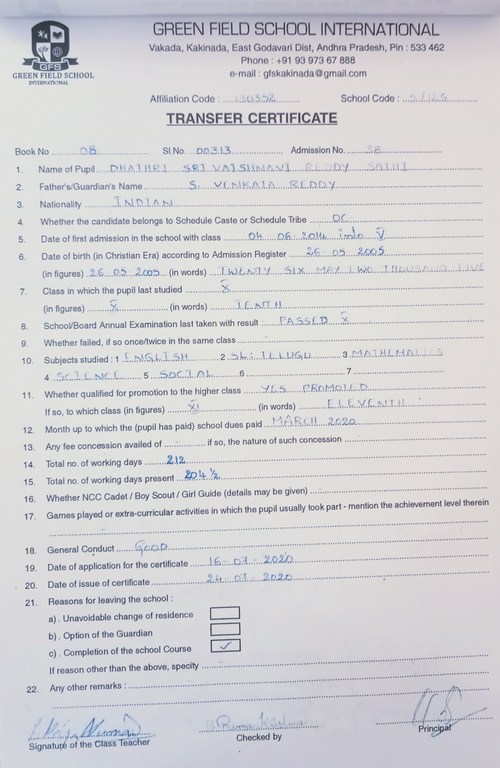 GFS
GREEN FIELD SCHOOL
INTERNATIONAL
GREEN FIELD SCHOOL INTERNATIONAL
Vakada, Kakinada, East Godavari Dist, Andhra Pradesh, Pin : 533 462
Phone : +91 93 973 67 888
e-mail : gfskakinada@gmail.com
Affiliation Code : 130352 School Code :
TRANSFER CERTIFICATE
Book No 08 Sl.No. 00313 Admission No. 38
1. Name of Pupil DHATHRI SRI VAISHNAVI REDDY SATHI
2. Father's/Guardian's Name S. VENKATA REDDY
3. Nationality INDIAN
4. Whether the candidate belongs to Schedule Caste or Schedule Tribe OC
5. Date of first admission in the school with class 04 06 2014 into V
6. Date of birth (in Christian Era) according to Admission Register 26-05-2005
(in figures) 26 05 2005 (in words) TWENTY SIX MAY TWO THOUSAND FIVE
7. Class in which the pupil last studied : X
(in figures) X (in words) TENTH
8. School/Board Annual Examination last taken with result : PASSED X
9. Whether failed, if so once/twice in the same class
10. Subjects studied : 1 ENGLISH 2 SL: TELUGU 3 MATHEMATICS
4 SCIENCE 5 SOCIAL 6 7
11. Whether qualified for promotion to the higher class YES PROMOTED
If so, to which class (in figures) XI (in words) ELEVENTH
12. Month up to which the (pupil has paid) school dues paid MARCH 2020
13. Any fee concession availed of if so, the nature of such concession
14. Total no. of working days 212
15. Total no. of working days present 204 ½
16. Whether NCC Cadet / Boy Scout / Girl Guide (details may be given)
17. Games played or extra-curricular activities in which the pupil usually took part - mention the achievement level therein
18. General Conduct GOOD
19. Date of application for the certificate 16-07-2020
20. Date of issue of certificate 24-07-2020
21. Reasons for leaving the school :
a) . Unavoidable change of residence
b) . Option of the Guardian
c) . Completion of the school Course ✓
If reason other than the above, specify
22. Any other remarks :
Signature of the Class Teacher
Checked by
Principal